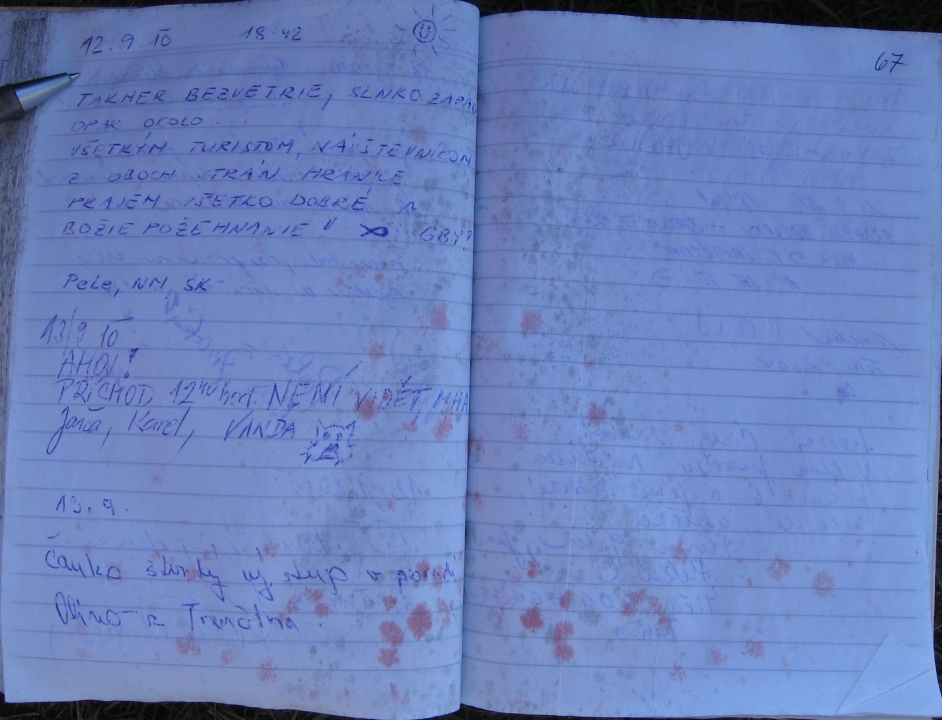 12.9 10 18:42
TAKMER BEZVETRIE, SLNKO ZAPAD
OPAR OKOLO...
VŠETKÝM TURISTOM, NÁVŠTEVNÍKOM
Z OBOCH STRÁN HRANICE
PRAJEM VŠETKO DOBRÉ A
BOŽIE POŽEHNANIE! GBY!
Pele, NM, SK
13/9 10
AHOJ!
PŘÍCHOD, 12 40 hod. NENÍ VIDĚT, MHA
Jana, Karel, VANDA
13.9.
Čauko štvrtý výstup v poradí
z Trenčína.
67